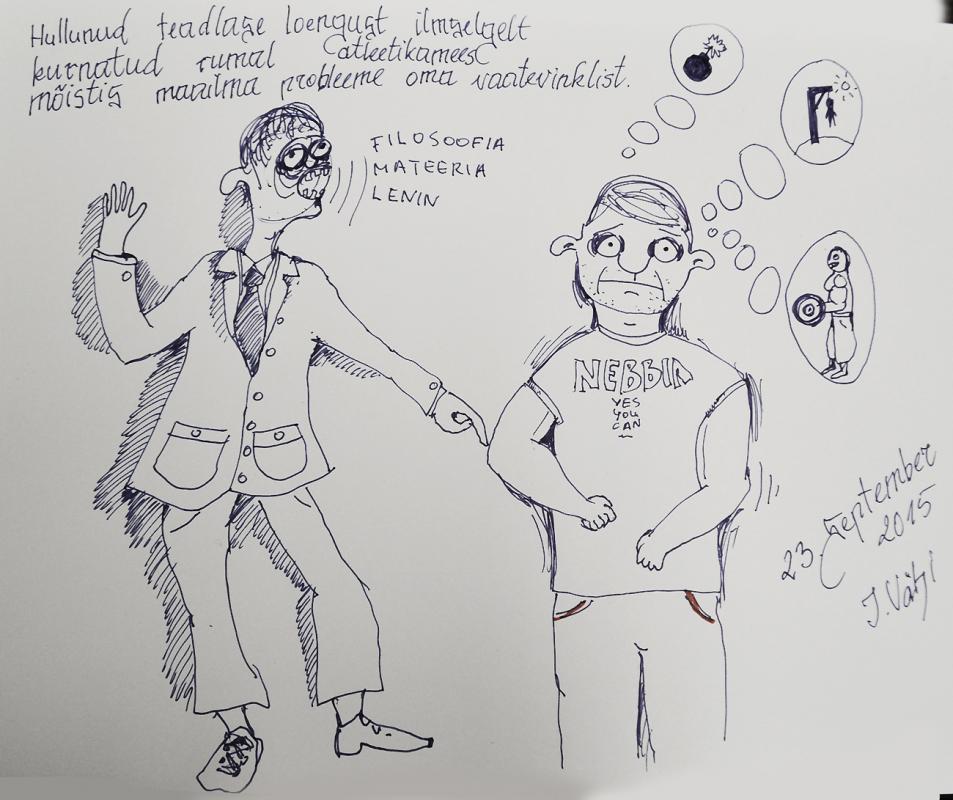 Hullunud teadlase loengust ilmselgelt
kurnatud rumal (atleetikamees(
mõistis maailma probleeme oma vaatevinklist.
FILOSOOFIA
MATEERIA
LENIN
NEBBIA
YES
YOU
CAN
23 September
2015